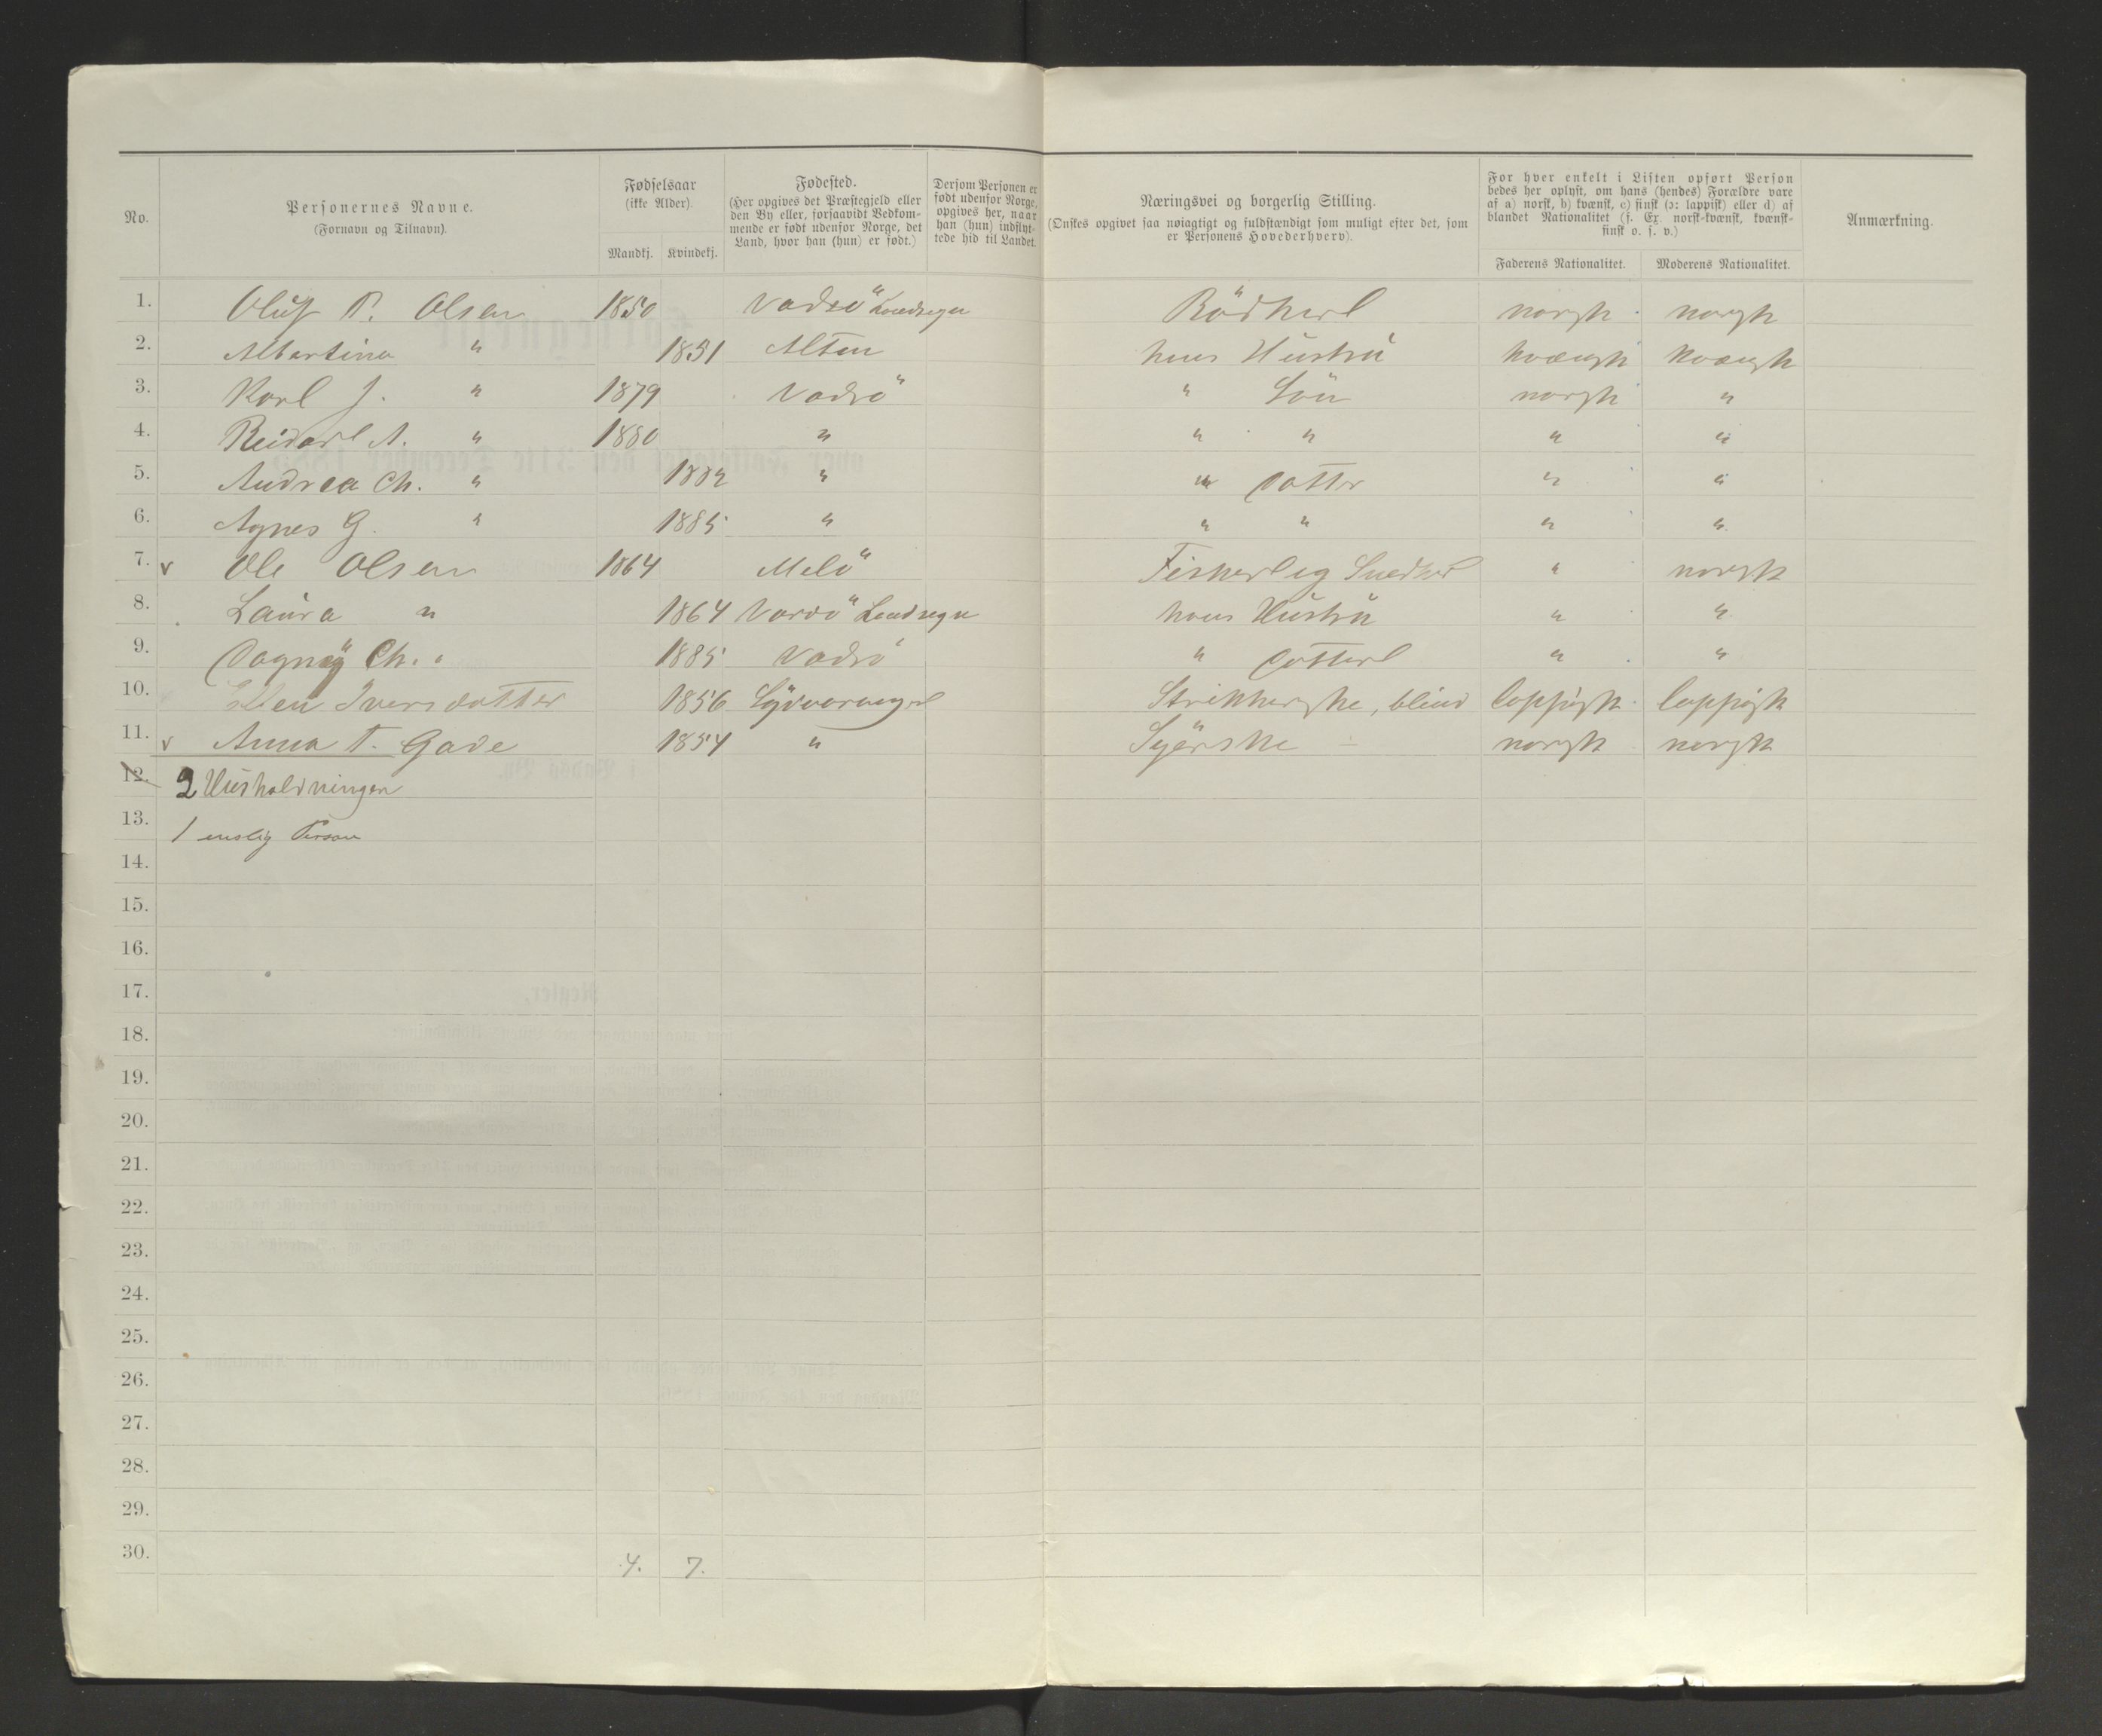 No.
Personernes Navne.
(Fornavn og Tilnavn).
Fødselsaar
(ikke Alder).
Mandkj. Kvindekj.
Fødested.
(Her opgives det Præstegjeld eller
den By eller, forsaavidt Vedkom-
mende er født udenfor Norge, det
Land, hvor han (hun) er født.)
Dersom Personen er
født udenfor Norge,
opgives her, naar
han (hun) indflyt-
tede hid til Landet.
Næringsvei og borgerlig Stilling.
(Ønskes opgivet saa nøiagtigt og fuldstændigt som muligt efter det, som
er Personens Hovederhverv).
For hver enkelt i Listen opført Person
bedes her oplyst, om hans (hendes) Forældre vare
af a) norsk, b) kvænsk, c) finsk (ɔ: lappisk) eller d) af
blandet Nationalitet (f. Ex. norsk-kvænsk, kvænsk-
finsk o. s. v.)
Faderens Nationalitet. Moderens Nationalitet.
Anmærkning.
1. Oluf P. Olsen 1850 Vadsö Landsogn Bödker norsk norsk
2. Albertine " 1851 Alten hans Hustru kvænsk kvænsk
3. Karl J. " 1879 Vadsö " Sön norsk "
4. Reidar A. " 1880 " " " " "
5. Andrea Ch. " 1882 " " Datter " "
6. Agnes G. " 1885 " " " " "
7. v Ole Olsen 1864 Melö Fisker og Snedker " norsk
8. Laura " 1864 Vardö Landsogn hans Hustru " "
9. Dagny Ch. " 1885 Vadsö " Datter " "
10. Ellen Iversdatter 1856 Sydvaranger Strikkerske, blind lappisk lappisk
11. v Anna T. Gade 1854 " Syerske norsk norsk
12. 2 Husholdninger
13. 1 enslig Person
14.
15.
16.
17.
18.
19.
20.
21.
22.
23.
24.
25.
26.
27.
28.
29.
30. 4. 7.